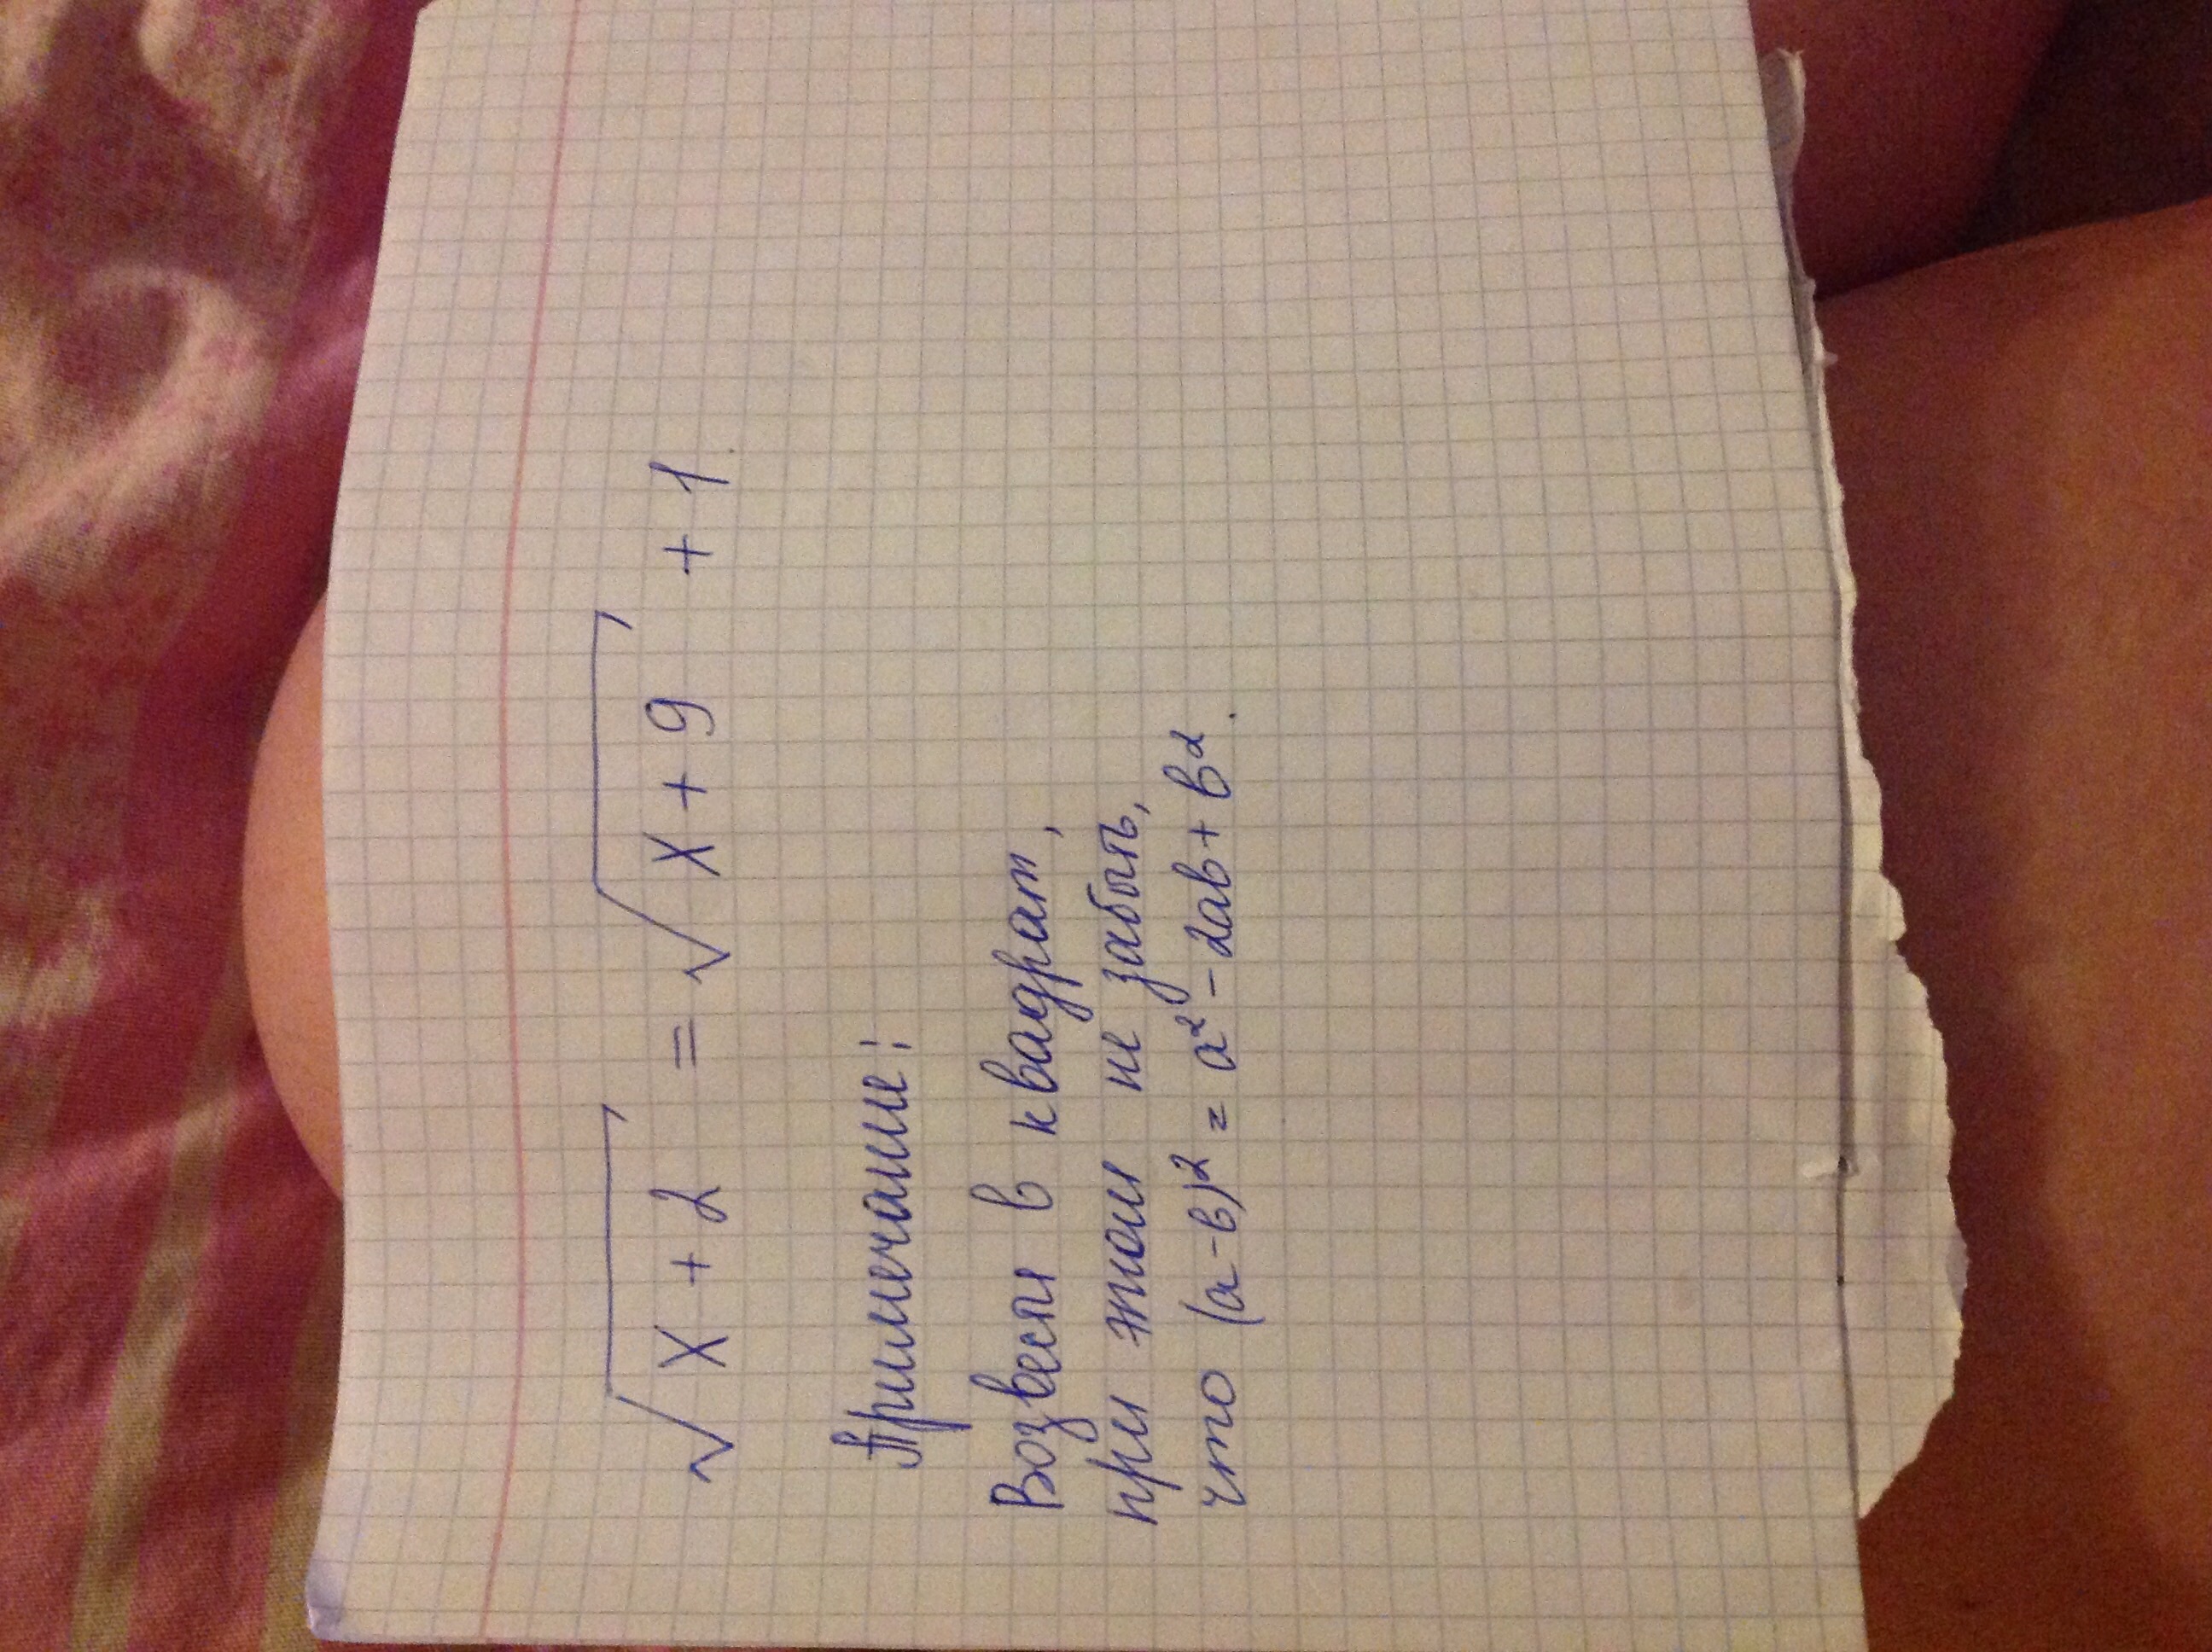 √x+2 = √x+9 + 1
Примечание:
Возвести в квадрат,
при этом не забыть,
что (а-в)² = а² - 2ав + в².